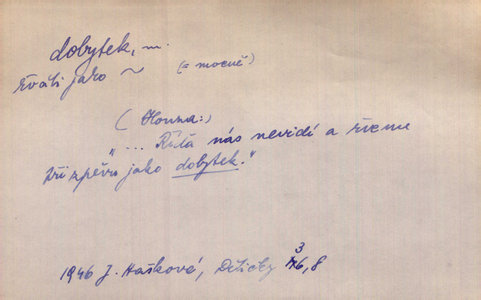 dobytek, ...
řváti jako ~ (= mocně)
(Honza:)
"... Růža nás nevidí a řveme
při zpěvu jako dobytek."
1946 J. Hašková, Dětičky 36,8